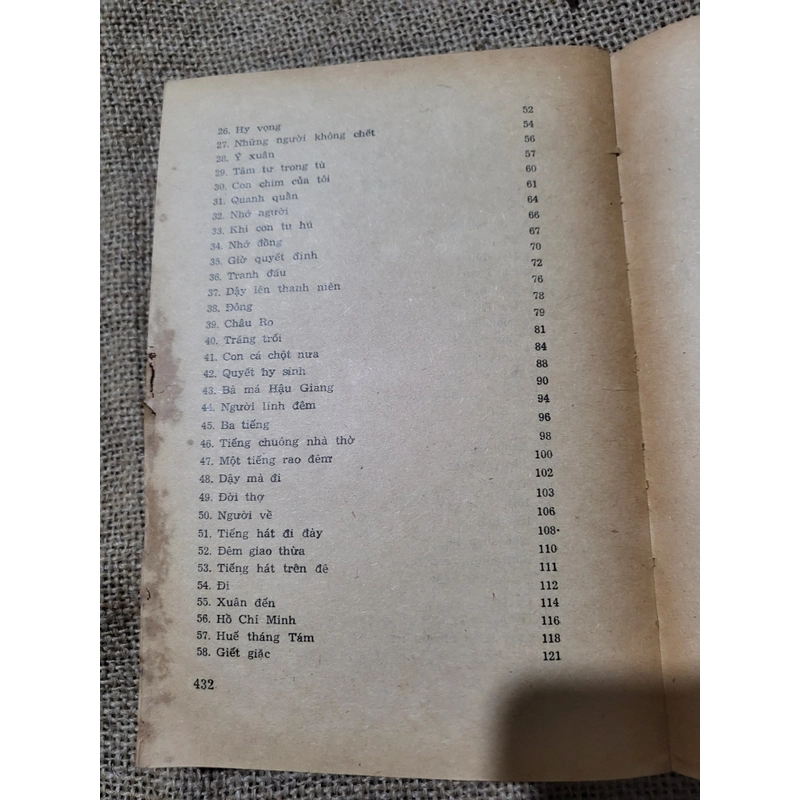 26. Hy vọng 52
27. Những người không chết 54
28. Ý xuân 56
29. Tâm tư trong tù 57
30. Con chim của tôi 60
31. Quanh quẩn 61
32. Nhớ người 64
33. Khi con tu hú 66
34. Nhớ đồng 67
35. Giờ quyết định 70
36. Tranh đấu 72
37. Dậy lên thanh niên 76
38. Đông 78
39. Châu Ro 79
40. Trăng trối 81
41. Con cá chột nưa 84
42. Quyết hy sinh 88
43. Bà má Hậu Giang 90
44. Người lính đêm 94
45. Ba tiếng 96
46. Tiếng chuông nhà thờ 98
47. Một tiếng rao đêm 100
48. Dậy mà đi 102
49. Đời thợ 103
50. Người về 106
51. Tiếng hát đi đày 108
52. Đêm giao thừa 110
53. Tiếng hát trên đê 111
54. Đi 112
55. Xuân đến 114
56. Hồ Chí Minh 116
57. Huế tháng Tám 118
58. Giết giặc 121
432